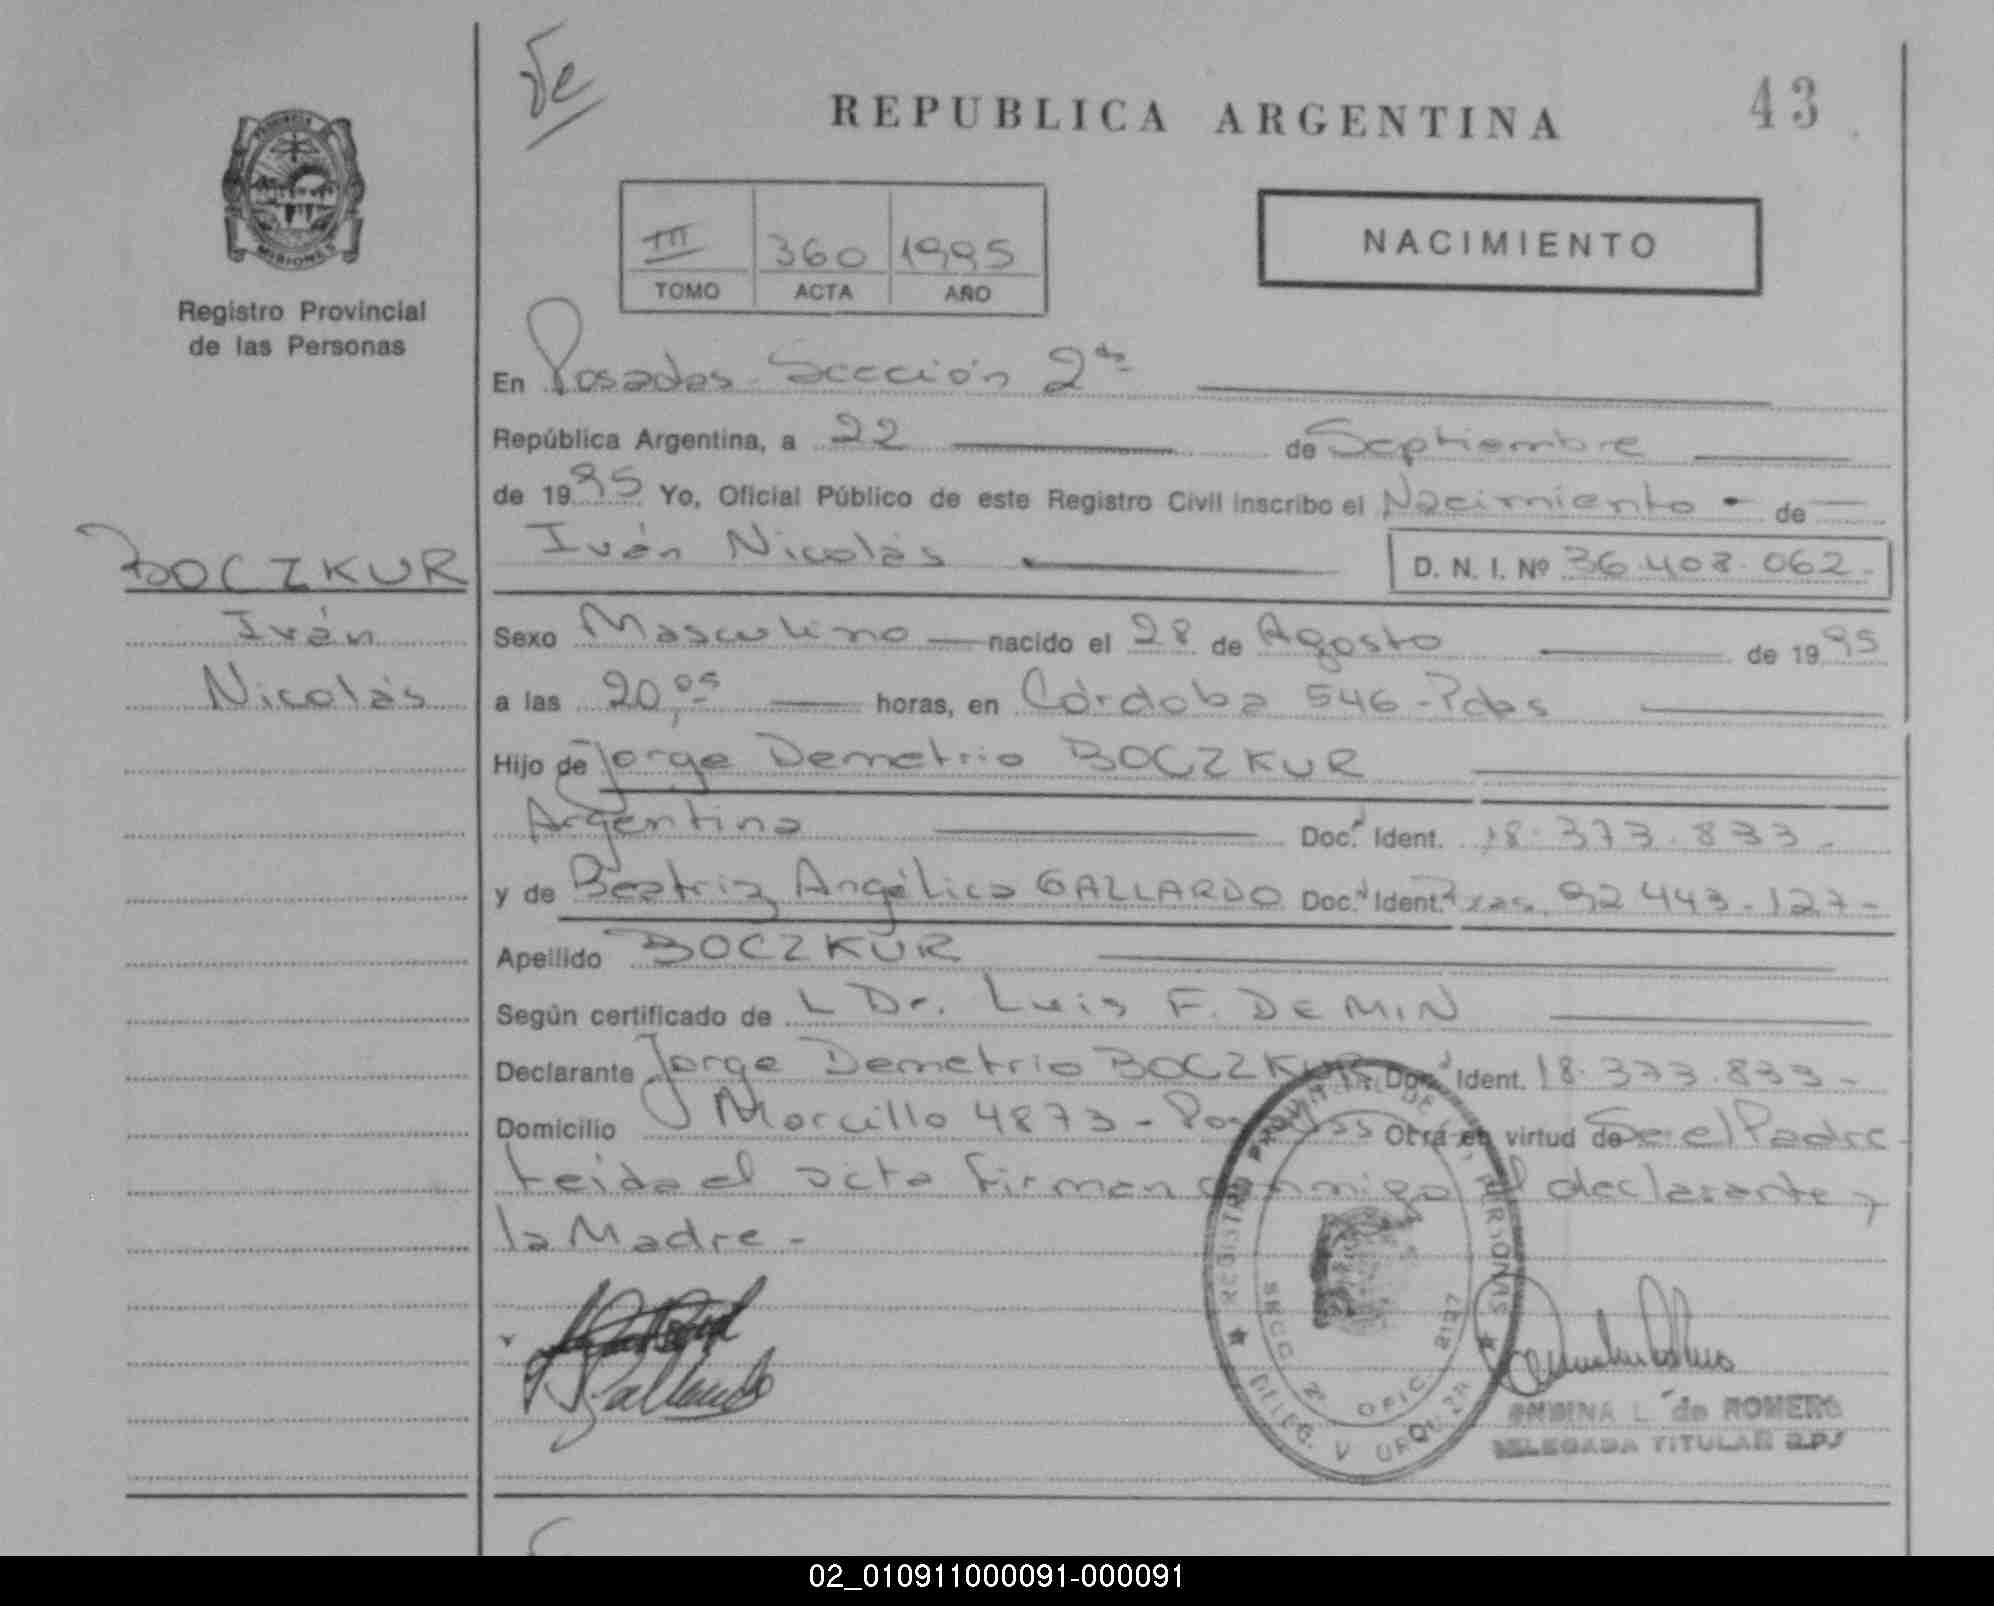 43
REPUBLICA ARGENTINA
PROVINCIA
MISIONES
Registro Provincial
de las Personas
III 360 1995
TOMO ACTA AÑO
NACIMIENTO
En Posadas - Sección 2da
República Argentina, a 22 de Septiembre
de 1995 Yo, Oficial Público de este Registro Civil inscribo el Nacimiento - de
BOCZKUR
Iván
Nicolás
Iván Nicolás D. N. I. Nº 36.408.062-
Sexo Masculino nacido el 28 de Agosto de 1995
a las 20,05 horas, en Córdoba 546 - Pdas
Hijo de Jorge Demetrio BOCZKUR
Argentina Doc. Ident. 18.373.833-
y de Beatriz Angélica GALLARDO Doc. Ident. 92.443.127-
Apellido BOCZKUR
Según certificado de L Dr. Luis F. DEMIN
Declarante Jorge Demetrio BOCZKUR Doc. Ident. 18.373.833-
Domicilio Morcillo 4873 - Posadas Obra en virtud de Ser el Padre
Leida el acta firman conmigo el declarante y
la Madre -
REGISTRO PROVINCIAL DE LAS PERSONAS
SECC 2ª OFIC. 2127
DELEG. V URQUIZA
L. de ROMERO
DELEGADA TITULAR R.P.
02_010911000091-000091